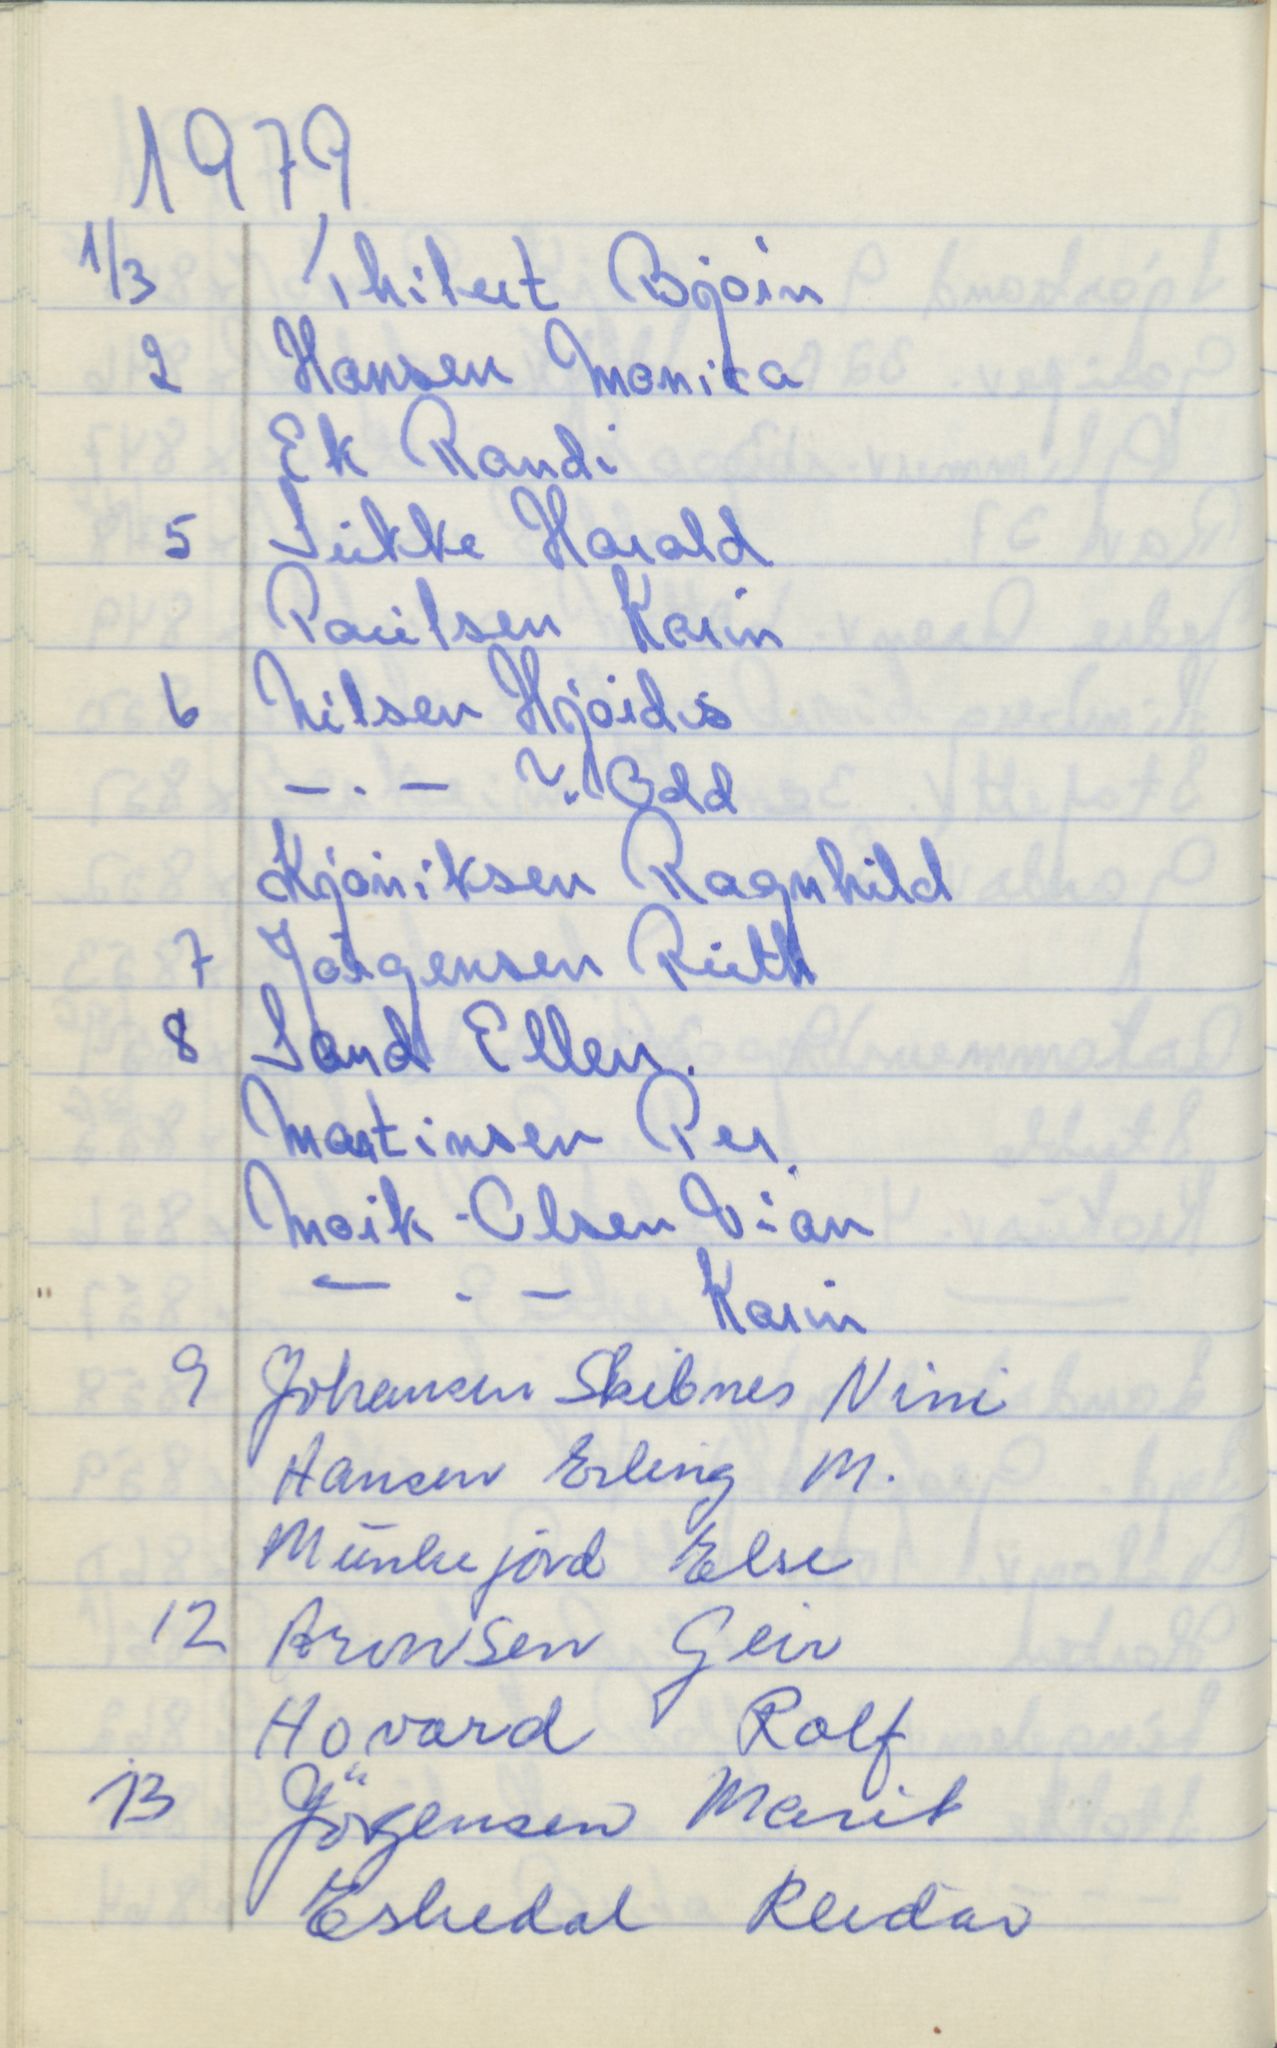 1979
1/3 Thilert Bjørn
2 Hansen Monica
Ek Randi
5 Sükke Harald
Paülsen Karin
6 Nilsen Hjørdis
— . — V. Odd
Kjøniksen Ragnhild
7 Jørgensen Rüth
8 Sand Ellen.
Martinsen Per.
Mørk-Olsen Vian
— . — Karin
9 Johansen Skibnes Nini
Hansen Erling M.
Münkejord Else
12 Aronsen Geir
Hovard Rolf
13 Jörgensen Marit
Eskedal Reidar